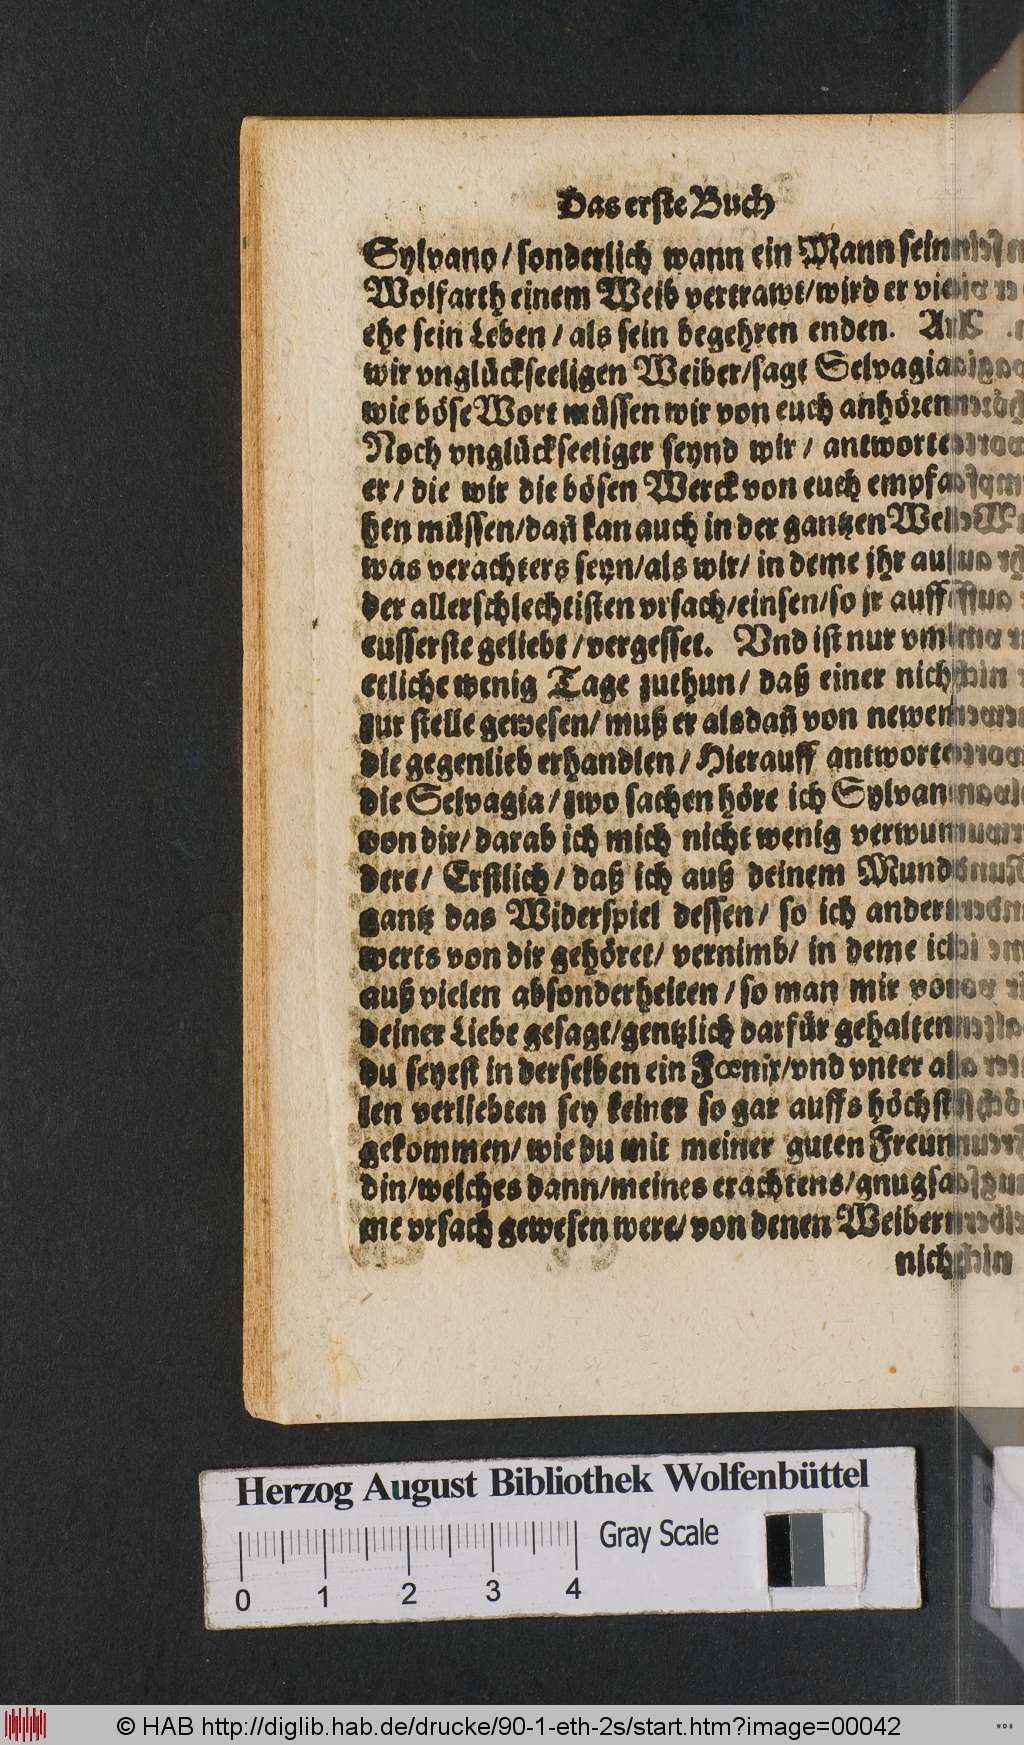 Das erste Buch
Sylvano / sonderlich wann ein Mann sein
Wolfarth einem Weib vertrawt / wird er vie
ehe sein Leben / als sein begehren enden.
wir vnglückseeligen Weiber / sagt Selvagia
wie böse Wort müssen wir von euch anhören
Noch vnglückseeliger seynd wir / antwortet
er / die wir die bösen Werck von euch empfa
hen müssen / dañ kan auch in der gantzen Welt
was verachters seyn / als wir / in deme jhr auß
der allerschlechtisten vrsach / einsen / so jr auff
eusserste geliebt / vergesset. Vnd ist nur vmb
etliche wenig Tage zuthun / daß einer nicht
zur stelle gewesen / muß er alsdañ von newem
die gegenlieb erhandlen / Hierauff antwortet
die Selvagia / zwo sachen höre ich Sylvan
von dir / darab ich mich nicht wenig verwun
dere / Erstlich / daß ich auß deinem Mund
gantz das Widerspiel dessen / so ich ander
werts von dir gehöret / vernimb / in deme ich
auß vielen absonderheiten / so man mir von
deiner Liebe gesagt / gentzlich darfür gehalten
du seyest in derselben ein Fœnix / vnd vnter al
len verliebten sey keiner so gar auffs höchst
gekommen / wie du mit meiner guten Freun
din / welches dann / meines erachtens / gnugsa
me vrsach gewesen were / von denen Weibern
nicht
Herzog August Bibliothek Wolfenbüttel
Gray Scale
0 1 2 3 4
© HAB http://diglib.hab.de/drucke/90-1-eth-2s/start.htm?image=00042